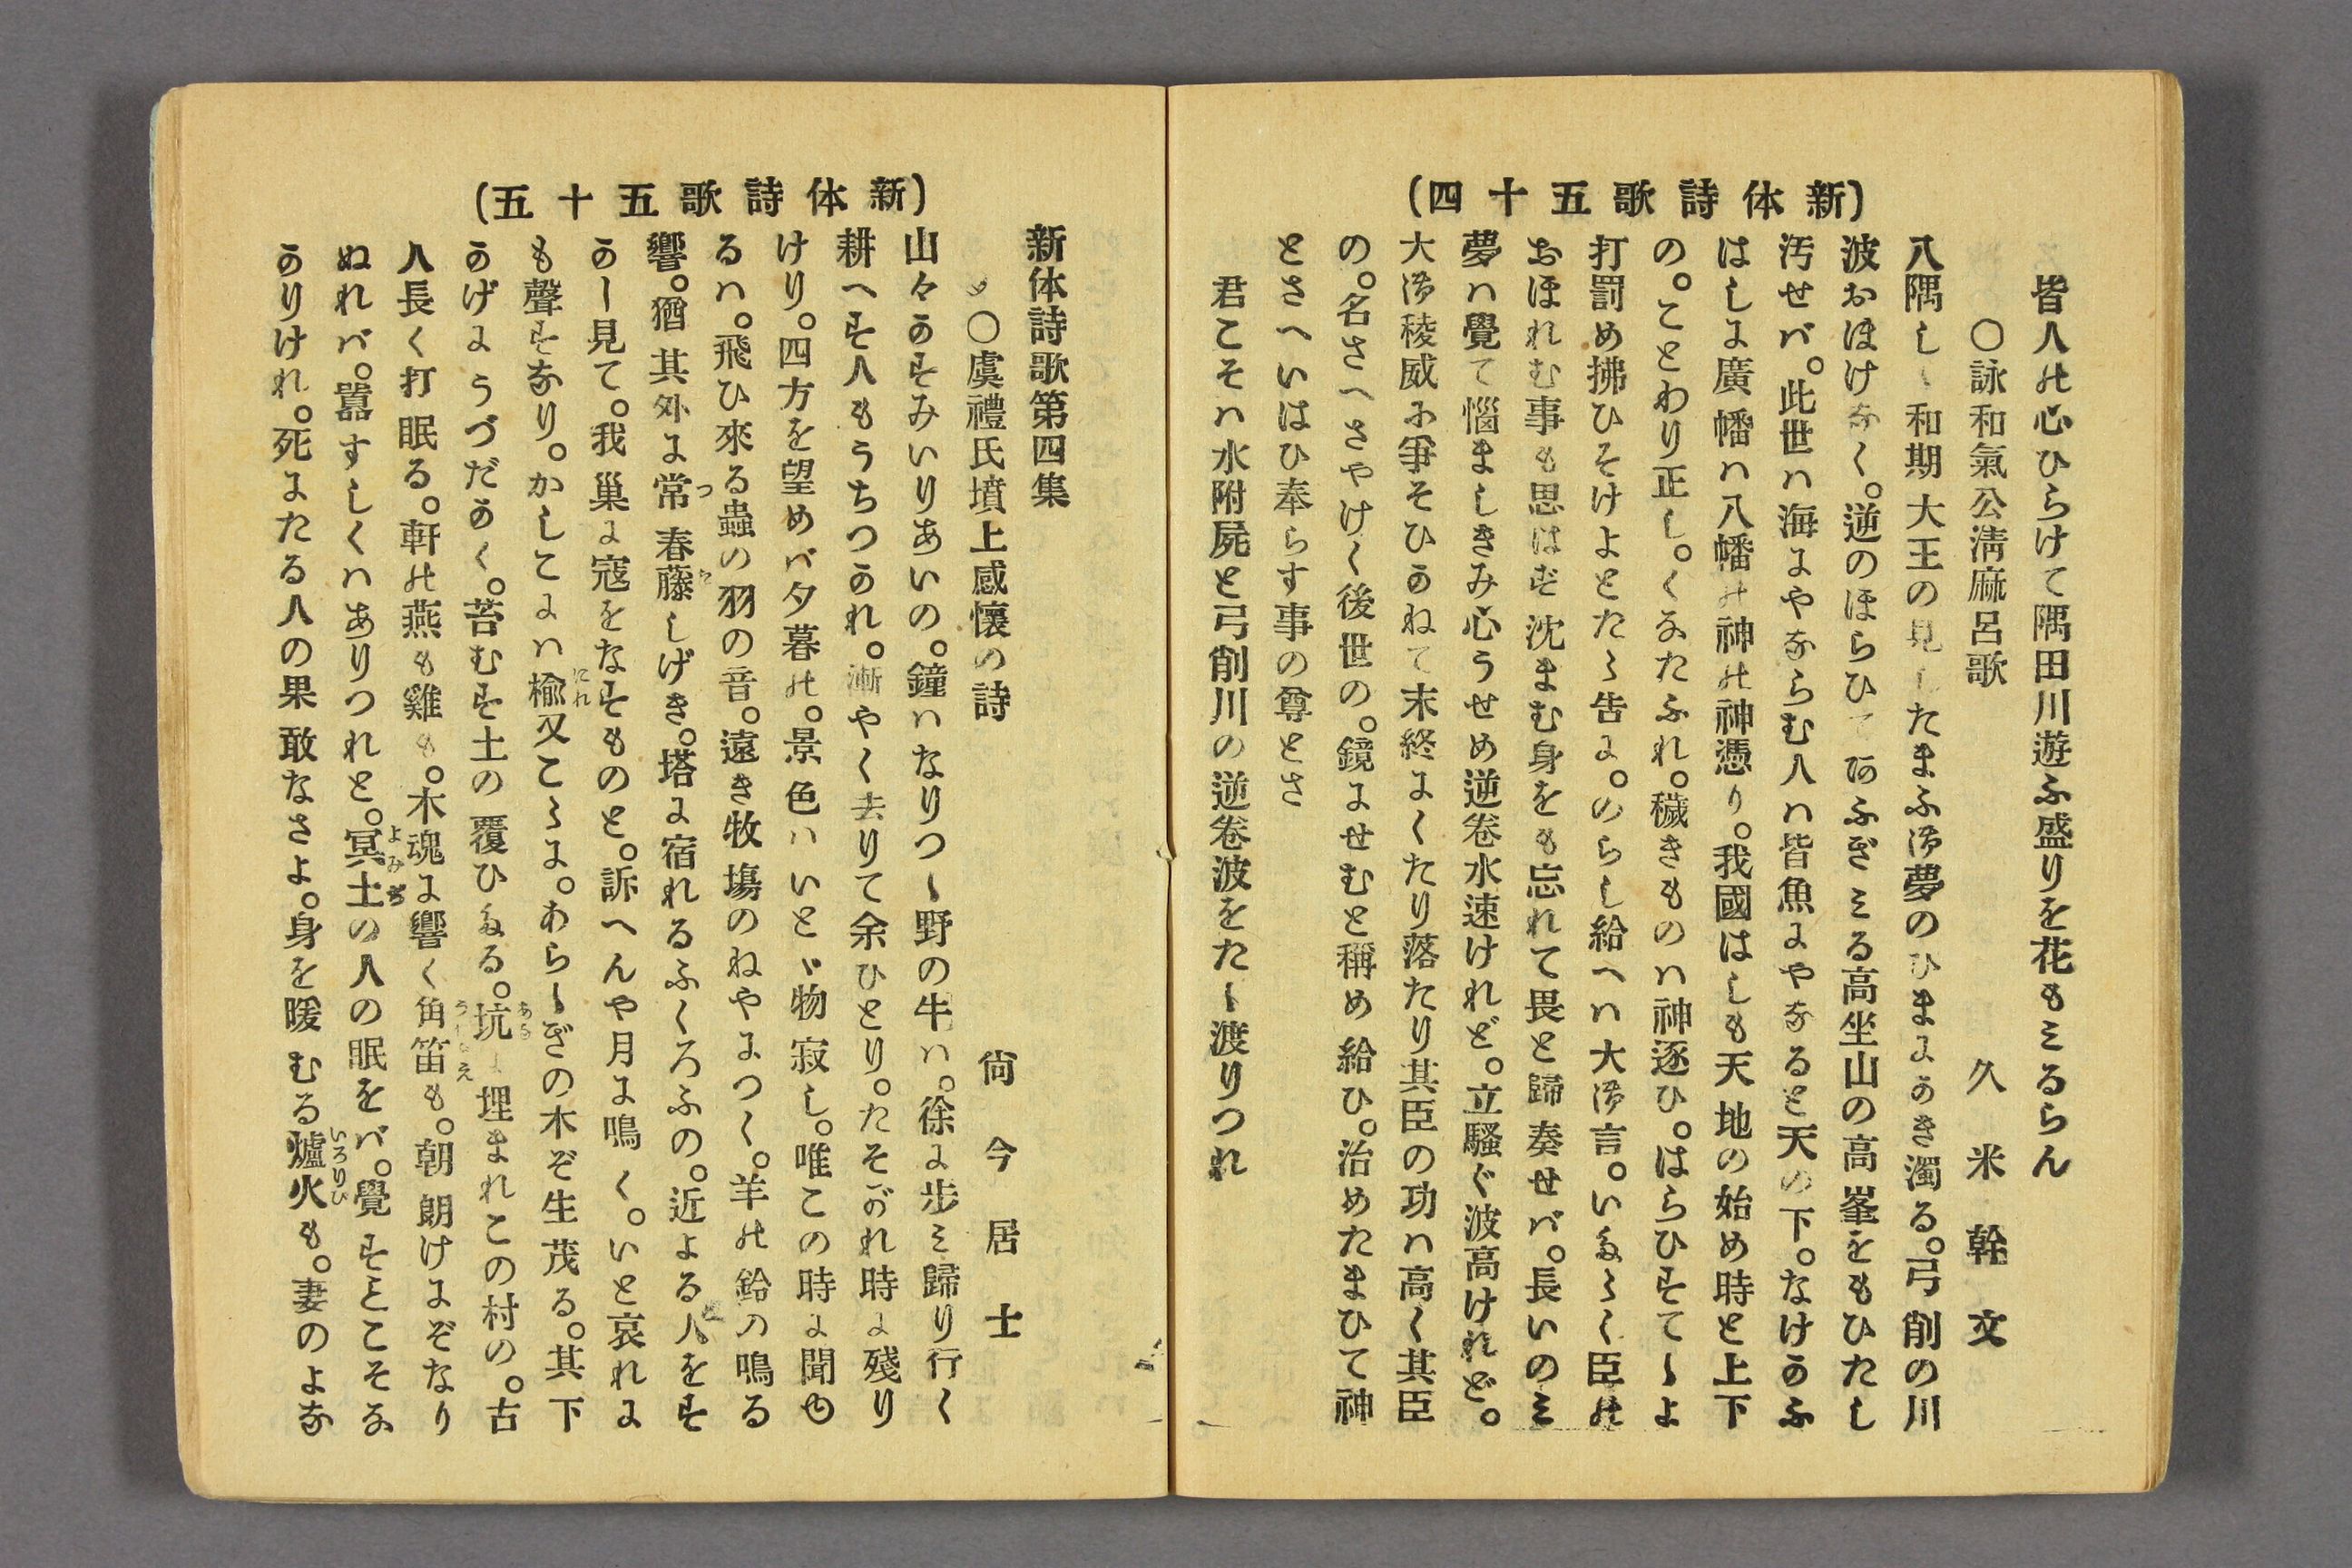 (新体詩歌五十四)
皆人の心ひらけて隅田川遊ふ盛りを花もミるらん
〇詠和氣公淸麻呂歌
久米幹文
八隅しゝ和期大王の見したまふ御夢のひまにかき濁る。弓削の川
波おほけなく。逆のほらひて あふぎミる高坐山の高峯をもひたし
汚せバ。此世ハ海にやならむ人ハ皆魚にやなると天の下。なけかふ
はしに廣幡ハ八幡の神の神憑り。我國はしも天地の始め時と上下
の。ことわり正し。くなたふれ。穢きものハ神逐ひ。はらひすてゝよ
打罰め拂ひそけよとたゝ告に。のらし給へハ大御言。いたゝく臣の
おほれむ事も思はず沈まむ身をも忘れて畏と歸奏せバ。長いのミ
夢ハ覺て惱ましきみ心うせめ逆卷水速けれど。立騷ぐ波高けれど。
大御稜威に爭そひかねて末終にくたり落たり其臣の功ハ高く其臣
の。名さへさやけく後世の。鏡にせむと稱め給ひ。治めたまひて神
とさへいはひ奉らす事の尊とさ
君こそハ水附屍と弓削川の逆卷波をたゝ渡りつれ
(新体詩歌五十五)
新体詩歌第四集
〇虞禮氏墳上感懷の詩
尙今居士
山々かすみいりあいの。鐘ハなりつゝ野の牛ハ。徐に步ミ歸り行く
耕へす人もうちつかれ。漸やく去りて余ひとり。たそがれ時に殘り
けり。四方を望めバ夕暮の。景色ハいとゞ物寂し。唯この時に聞ゆ
るハ。飛ひ來る蟲の羽の音。遠き牧塲のねやにつく。羊の鈴の鳴る
響。猶其外に常春藤しげき。塔に宿れるふくろふの。近よる人をす
かし見て。我巢に寇をなすものと。訴へんや月に鳴く。いと哀れに
も聲すなり。かしこにハ楡又こゝに。わらゝぎの木ぞ生茂る。其下
かげにうづだかく。苔むす土の覆ひたる。坑に埋まれこの村の。古
人長く打眠る。軒の燕も雞も。木魂に響く角笛も。朝朗けにぞなり
ぬれバ。囂すしくハありつれと。冥土の人の眠をバ。覺すミこそな
かりけれ。死にたる人の果敢なさよ。身を暖むる爐火も。妻のよな